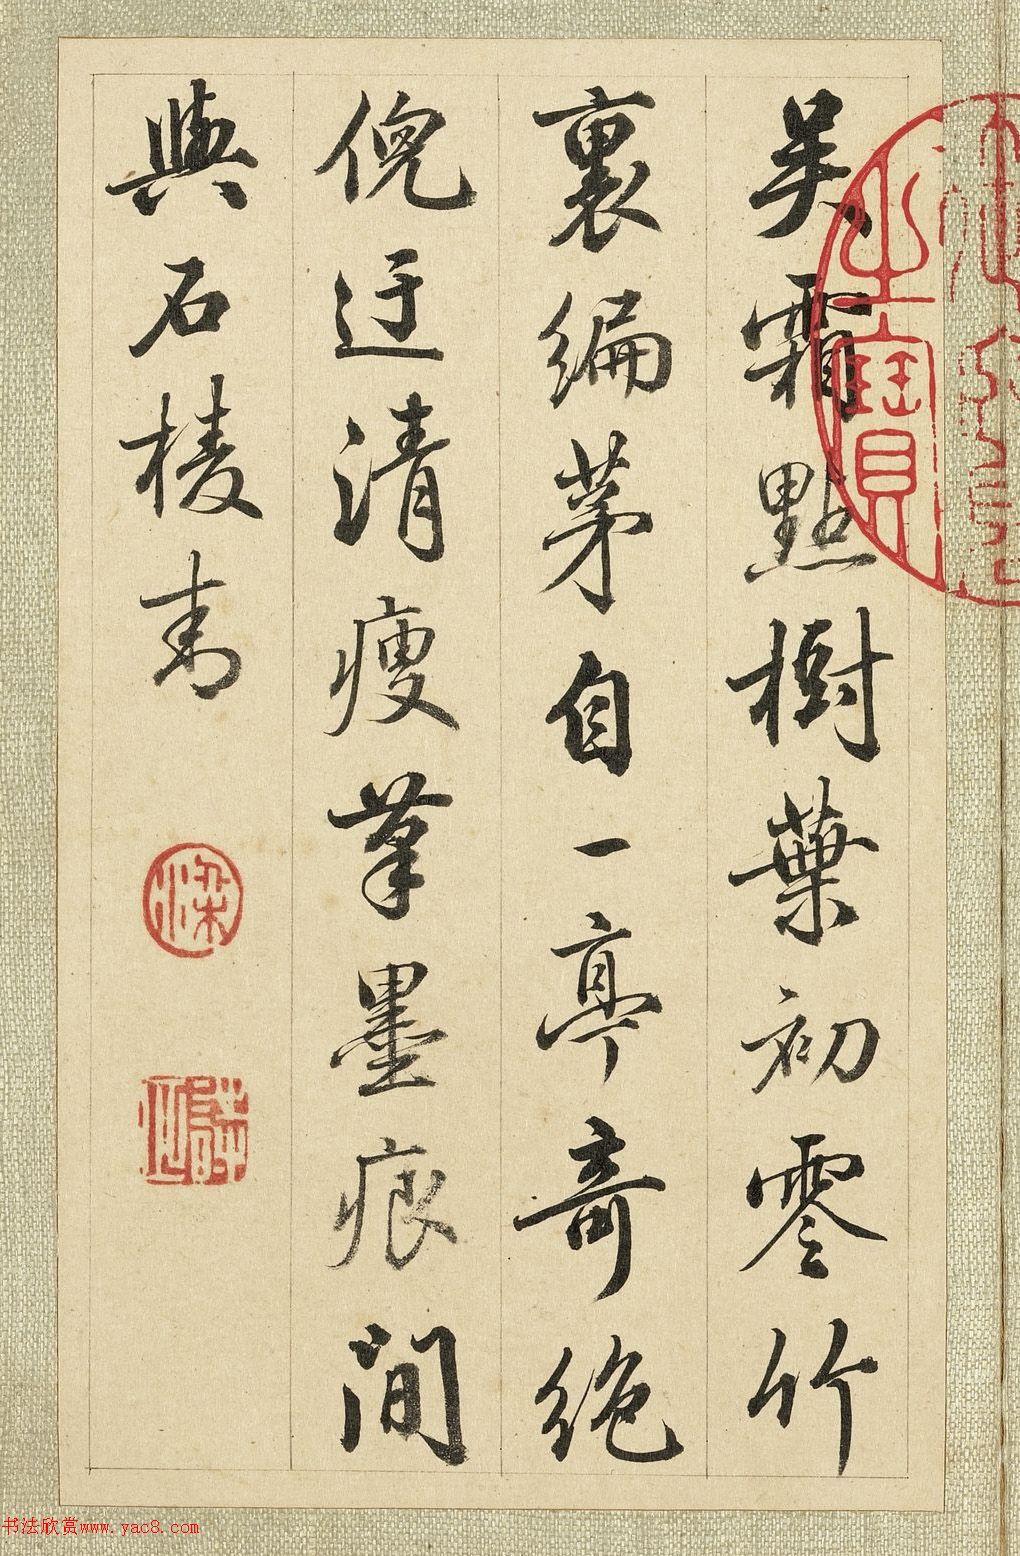 吳霜點樹葉初零竹
裏編茅自一亭奇絶
倪迂清瘦筆墨痕間
與石棱青
梁
之寶
书法欣赏www.yac8.com